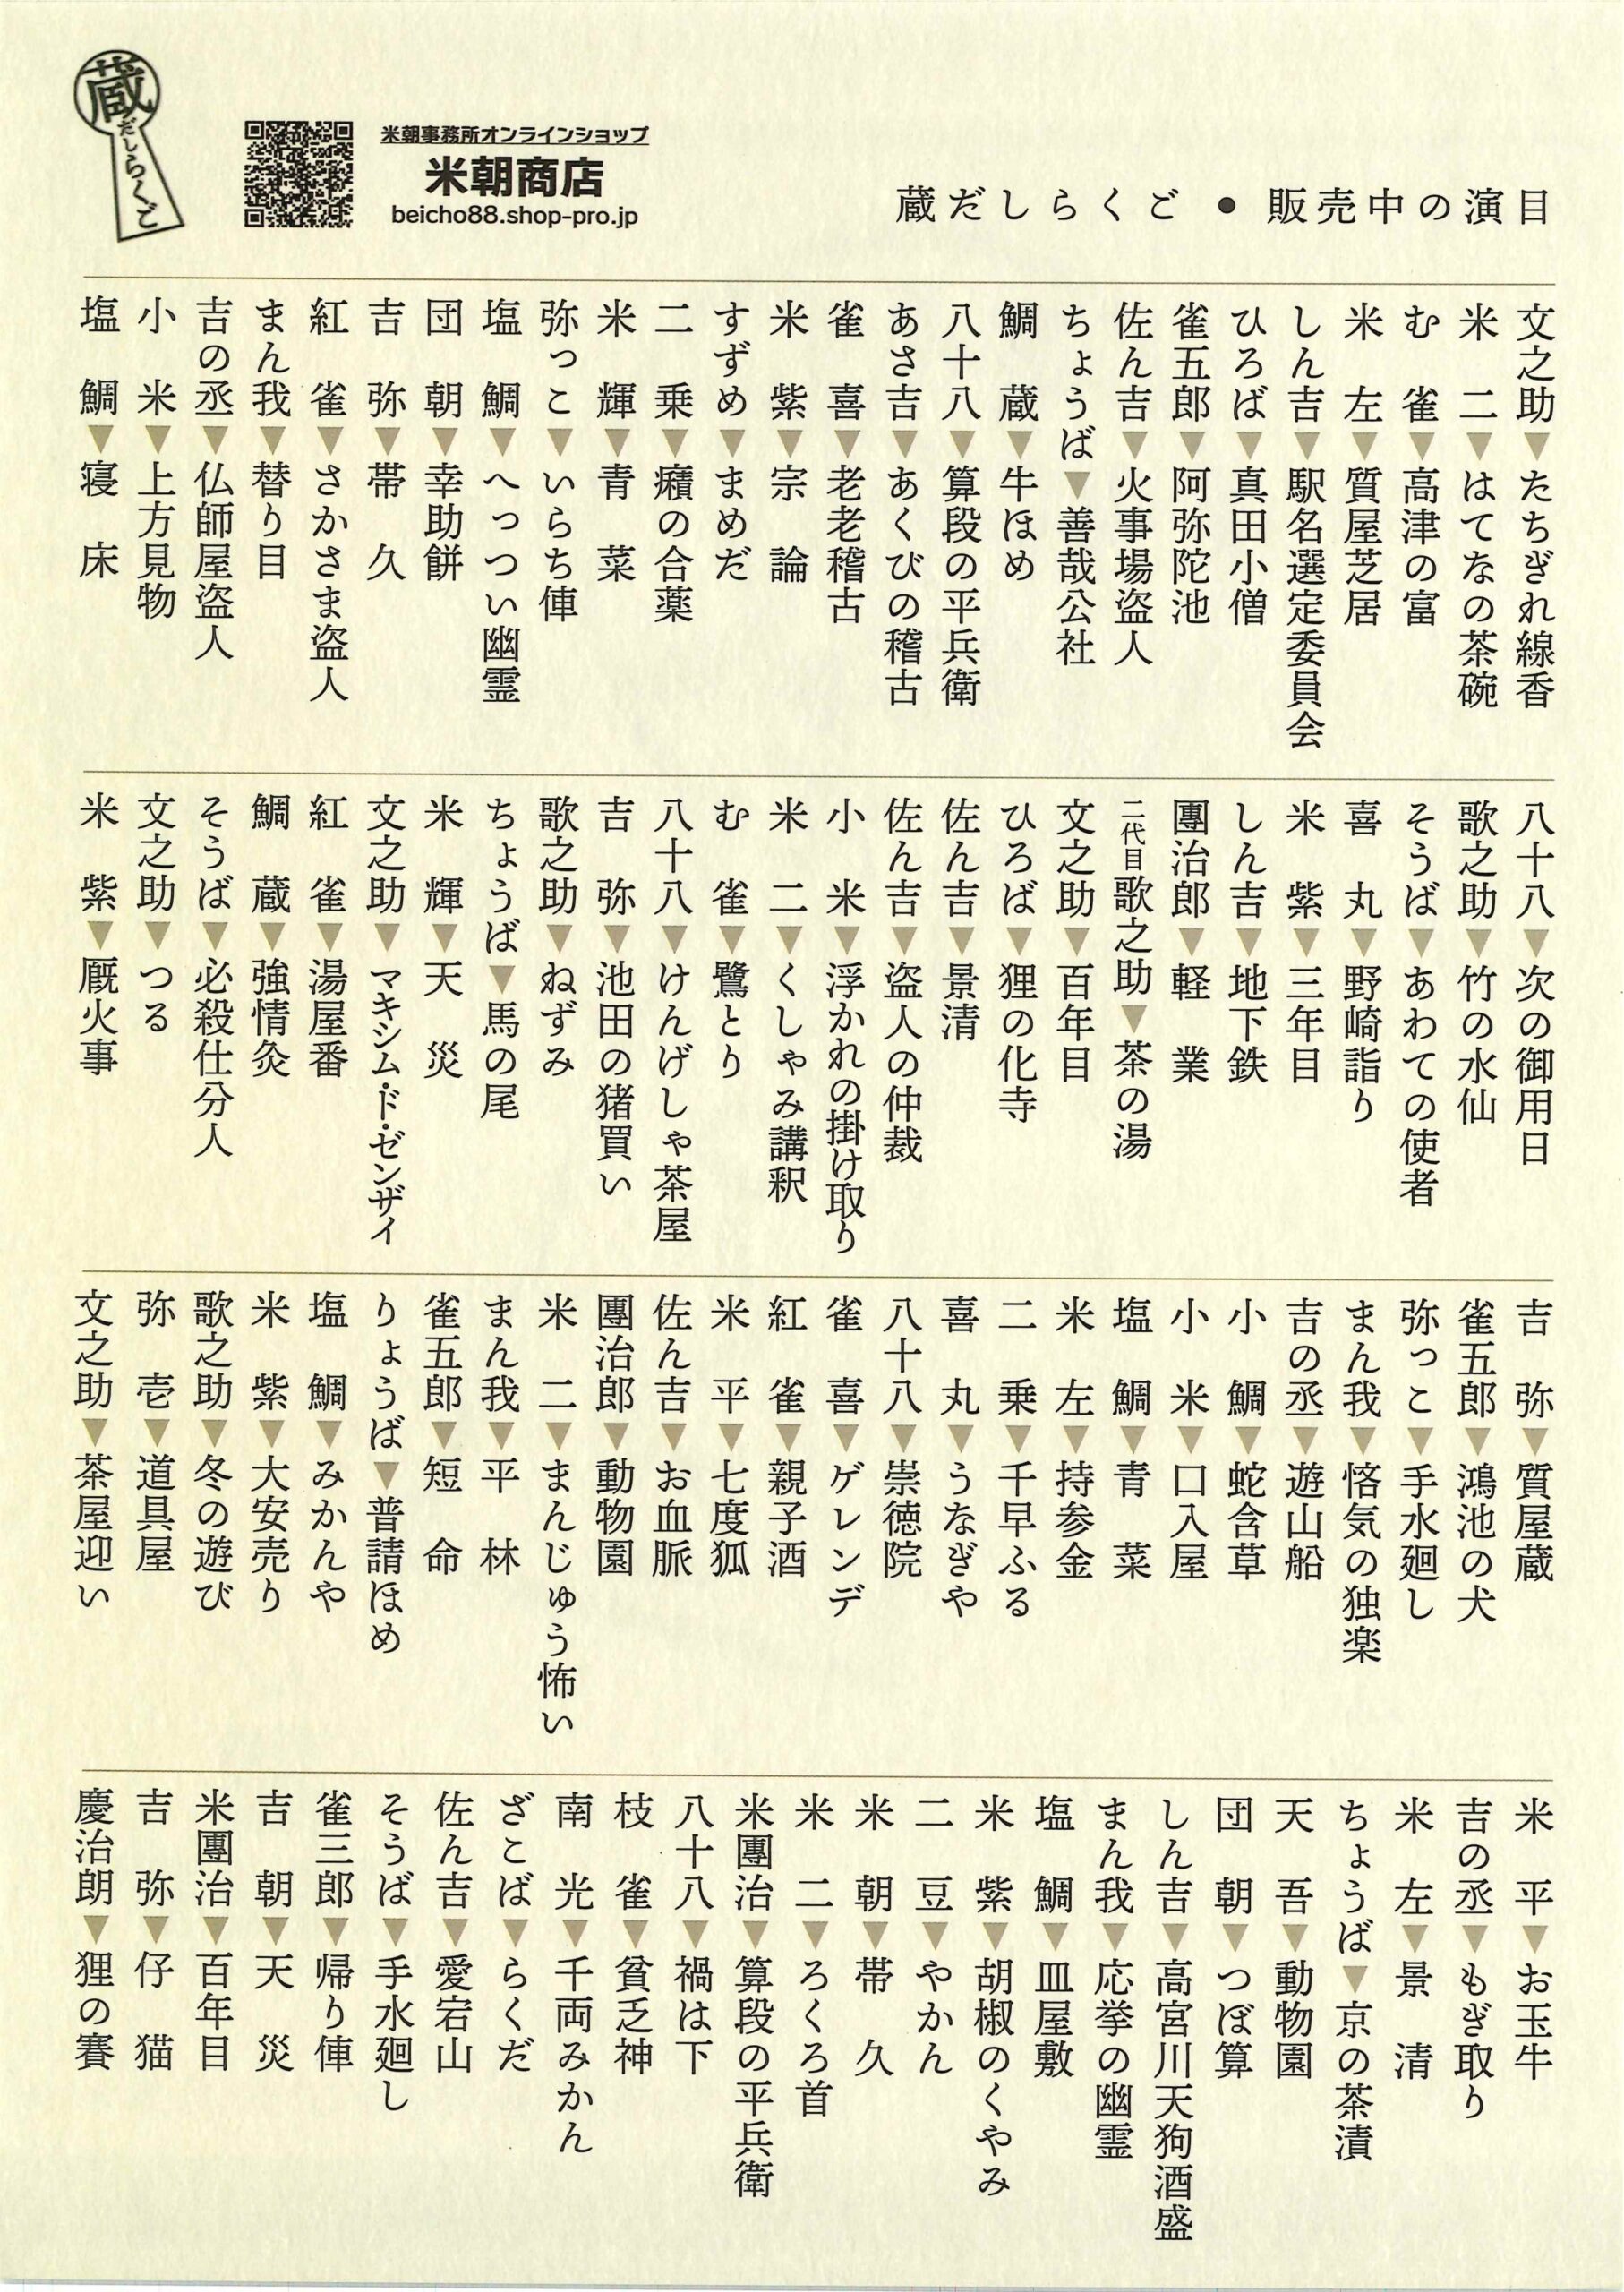 蔵だしらくご
米朝事務所オンラインショップ
米朝商店
beicho88.shop-pro.jp
蔵だしらくご ● 販売中の演目
文之助▼たちぎれ線香
米二▼はてなの茶碗
む雀▼高津の富
米左▼質屋芝居
しん吉▼駅名選定委員会
ひろば▼真田小僧
雀五郎▼阿弥陀池
佐ん吉▼火事場盗人
ちょうば▼善哉公社
鯛蔵▼牛ほめ
八十八▼算段の平兵衛
あさ吉▼あくびの稽古
雀喜▼老老稽古
米紫▼宗論
すずめ▼まめだ
二乗▼癪の合薬
米輝▼青菜
弥っこ▼いらち俥
塩鯛▼へっつい幽霊
団朝▼幸助餅
吉弥▼帯久
紅雀▼さかさま盗人
まん我▼替り目
吉の丞▼仏師屋盗人
小米▼上方見物
塩鯛▼寝床
八十八▼次の御用日
歌之助▼竹の水仙
そうば▼あわての使者
喜丸▼野崎詣り
米紫▼三年目
しん吉▼地下鉄
團治郎▼軽業
二代目歌之助▼茶の湯
文之助▼百年目
ひろば▼狸の化寺
佐ん吉▼景清
佐ん吉▼盗人の仲裁
小米▼浮かれの掛け取り
米二▼くしゃみ講釈
む雀▼鷺とり
八十八▼けんげしゃ茶屋
吉弥▼池田の猪買い
歌之助▼ねずみ
ちょうば▼馬の尾
米輝▼天災
文之助▼マキシム・ド・ゼンザイ
紅雀▼湯屋番
鯛蔵▼強情灸
そうば▼必殺仕分人
文之助▼つる
米紫▼厩火事
吉弥▼質屋蔵
雀五郎▼鴻池の犬
弥っこ▼手水廻し
まん我▼悋気の独楽
吉の丞▼遊山船
小鯛▼蛇含草
小米▼口入屋
塩鯛▼青菜
米左▼持参金
二乗▼千早ふる
喜丸▼うなぎや
八十八▼崇徳院
雀喜▼ゲレンデ
紅雀▼親子酒
米平▼七度狐
佐ん吉▼お血脈
團治郎▼動物園
米二▼まんじゅう怖い
まん我▼平林
雀五郎▼短命
りょうば▼普請ほめ
塩鯛▼みかんや
米紫▼大安売り
歌之助▼冬の遊び
弥壱▼道具屋
文之助▼茶屋迎い
米平▼お玉牛
吉の丞▼もぎ取り
米左▼景清
ちょうば▼京の茶漬
天吾▼動物園
団朝▼つぼ算
しん吉▼高宮川天狗酒盛
まん我▼応挙の幽霊
塩鯛▼皿屋敷
米紫▼胡椒のくやみ
二豆▼やかん
米朝▼帯久
米二▼ろくろ首
米團治▼算段の平兵衛
八十八▼禍は下
枝雀▼貧乏神
南光▼千両みかん
ざこば▼らくだ
佐ん吉▼愛宕山
そうば▼手水廻し
雀三郎▼帰り俥
吉朝▼天災
米團治▼百年目
吉弥▼仔猫
慶治朗▼狸の賽